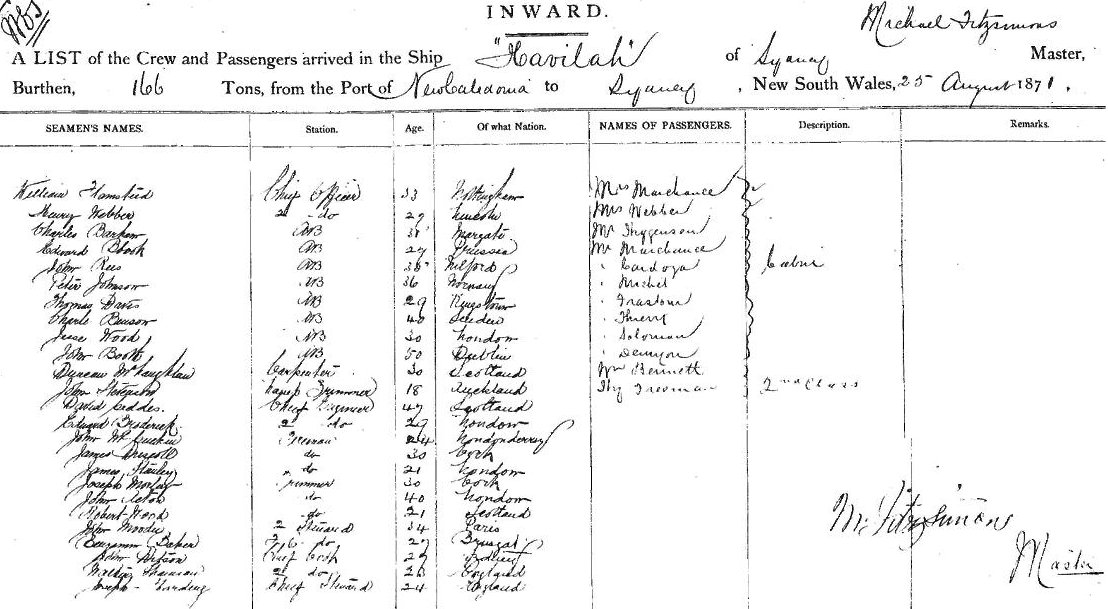 INWARD.
Michael Fitzsimons
A LIST of the Crew and Passengers arrived in the Ship "Havilah" of Sydney Master,
Burthen, 166 Tons, from the Port of New Caledonia to Sydney, New South Wales, 25 August 1871.
SEAMEN'S NAMES. Station. Age. Of what Nation. NAMES OF PASSENGERS. Description. Remarks.
William Chief Officer 33 Nottingham Mrs Marchance
Henry Webber 2 do 29 Lincoln Mrs Webber
Charles Barham AB Margate Mr
Edward Block AB 27 Prussia Mr Marchance
John Rees AB Milford " Cardoza Cabin
Peter Johnson AB 36 Norway " Michel
Thomas Davis AB 29 Kingstown "
Charles AB 40 Sweden " Thierry
Jesse Wood AB 30 London " Soloman
John Booth AB 50 Dublin "
Duncan McLaughlan Carpenter 30 Scotland Wm Bennett
John Trimmer 18 Auckland Hy Freeman 2nd Class
David Geddes. Chief Engineer 47 Scotland
Edward Broderick 2 do 29 London
John Fireman 24 Londonderry
James Driscoll do 30 Cork
James Stanley do 21 London
Joseph Trimmer 30 Cork
John Acton do 40 London
Robert Ward do 21 Scotland
John Moodie 2 Steward 34 Paris
Benjamin Baker do 27
Chief Cook 29 Sydney
Walter 2 do England
Joseph Chief Steward 24 England
M. Fitzsimons
Master